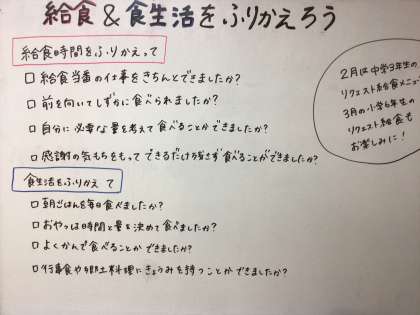 給食&食生活をふりかえろう
給食時間をふりかえって
□ 給食当番の仕事をきちんとできましたか?
□ 前を向いてしずかに食べられましたか?
□ 自分に必要な量を考えて食べることができましたか?
□ 感謝の気もちをもってできるだけ残さず食べることができましたか?
食生活をふりかえって
□ 朝ごはんを毎日食べましたか?
□ おやつは時間と量を決めて食べましたか?
□ よくかんで食べることができましたか?
□ 行事食や郷土料理にきょうみを持つことができましたか?
2月は中学3年生の
リクエスト給食メニュー
3月の小学6年生の
リクエスト給食も
お楽しみに!